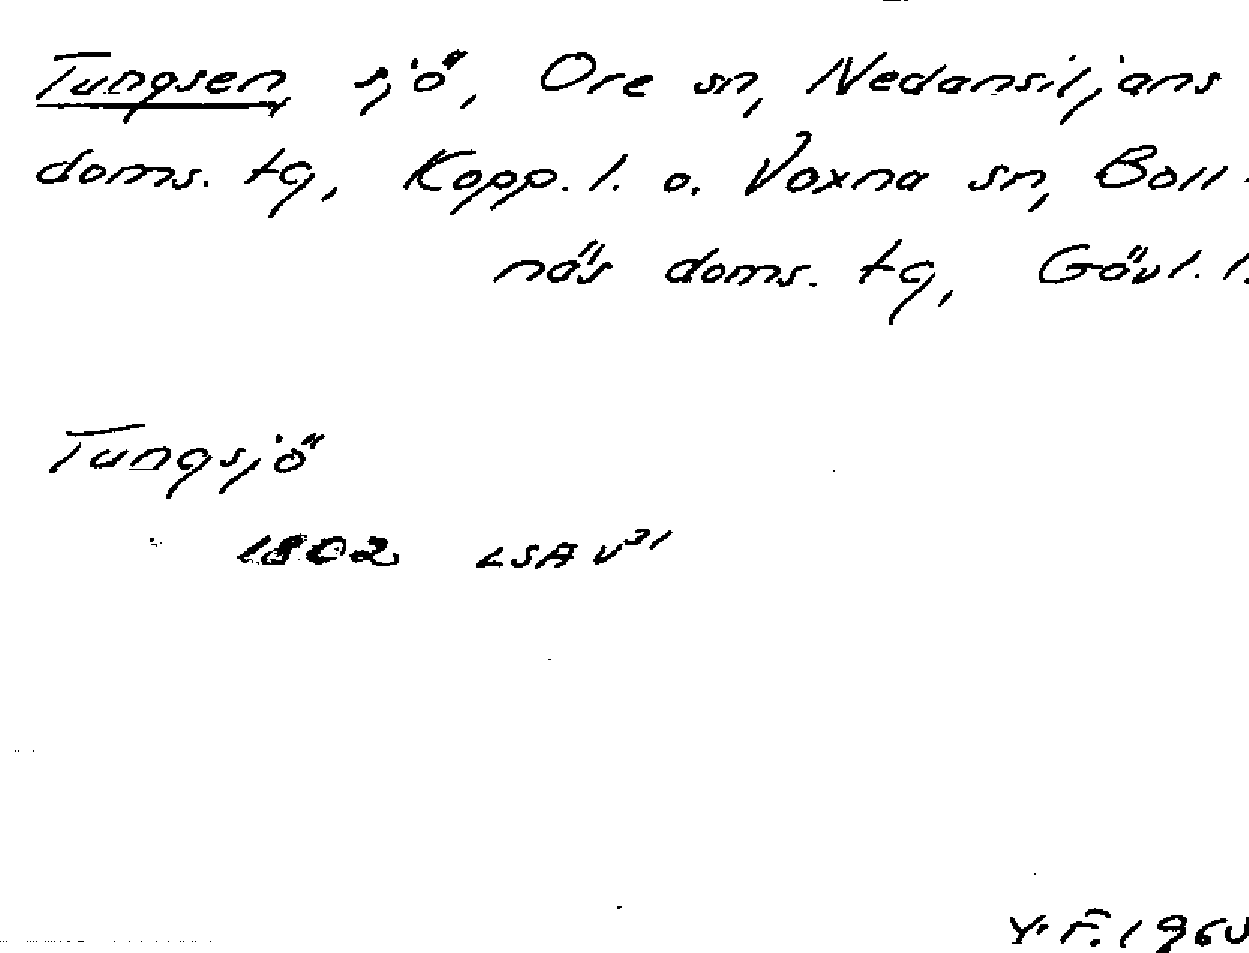 Tungsen sjö, Ore sn, Nedansiljans
doms. tg, Kopp. l. o. Voxna sn, Boll-
näs doms. tg, Gävl. l.
Tungsjö
1802 LSA V³¹
Y. F. 1960